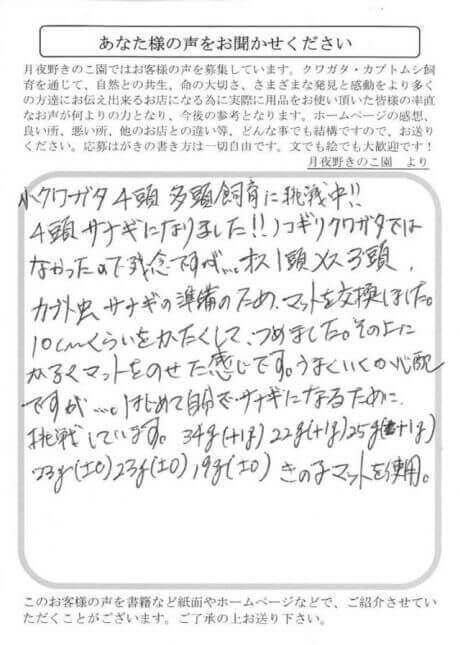 あなた様の声をお聞かせください
月夜野きのこ園ではお客様の声を募集しています。クワガタ・カブトムシ飼
育を通じて、自然との共生、命の大切さ、さまざまな発見と感動をより多く
の方達にお伝え出来るお店になる為に実際に用品をお使い頂いた皆様の率直
なお声が何よりの力となり、今後の参考となります。ホームページの感想、
良い所、悪い所、他のお店との違い等、どんな事でも結構ですので、お送り
ください。応募はがきの書き方は一切自由です。文でも絵でも大歓迎です！
月夜野きのこ園　より
小クワガタ4頭 多頭飼育に挑戦中!!
4頭サナギになりました!!ノコギリクワガタでは
なかったので残念ですが… オス1頭メス3頭、
カブト虫サナギの準備のため、マットを交換しました。
10cmくらいをかたくして、つめました。その上に
かるくマットをのせた感じです。うまくいくか心配
ですが…。はじめて自分で、サナギになるために、
挑戦しています。34g(+1g) 22g(+1g) 25g(+1g)
23g(±0) 23g(±0) 19g(±0) きのこマットを使用。
このお客様の声を書籍など紙面やホームページなどで、ご紹介させてい
ただくことがございます。ご了承の上お送り下さい。